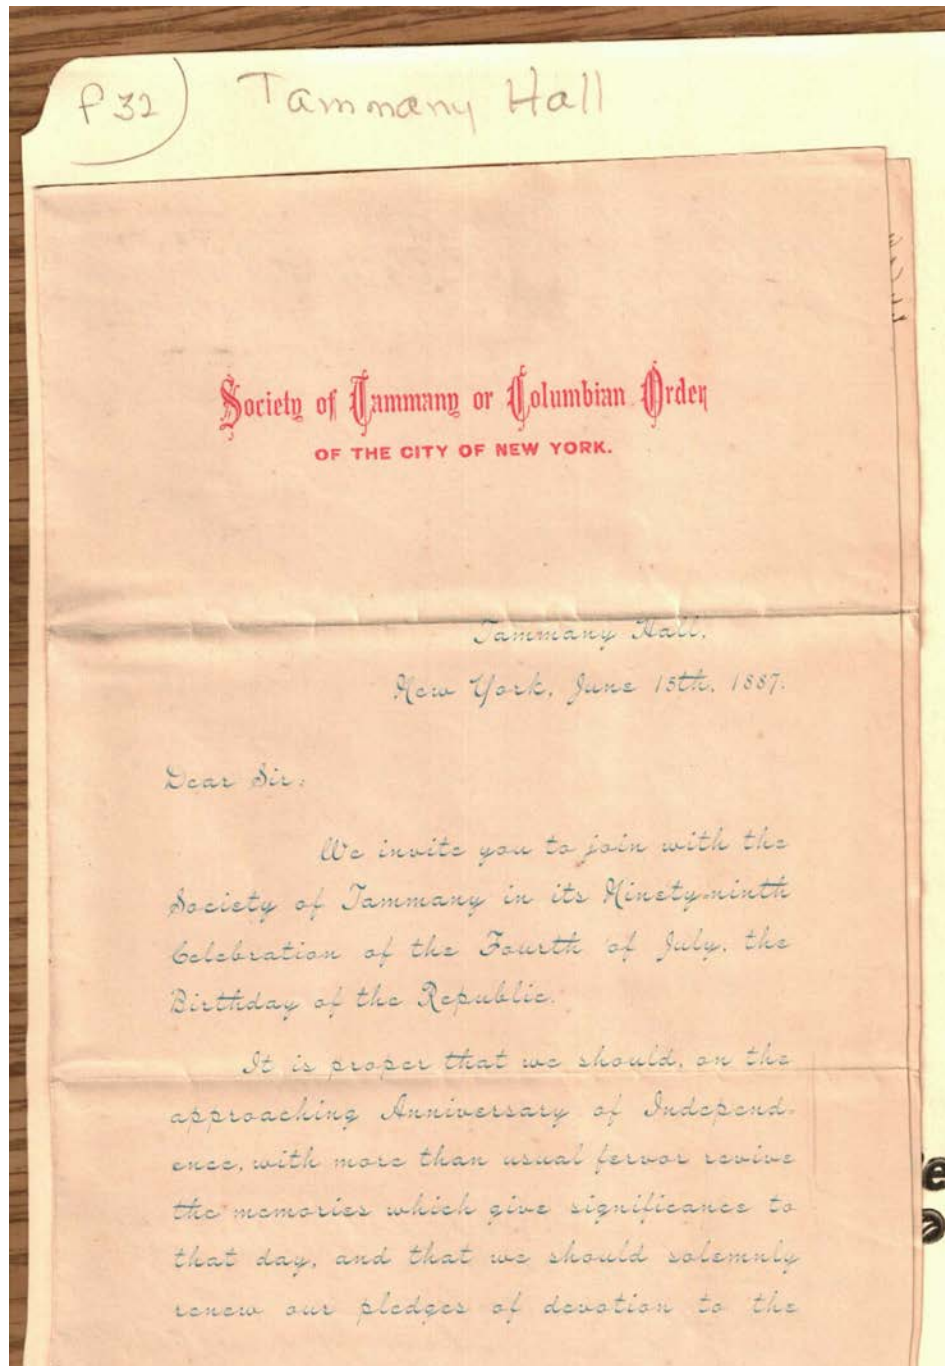 P 32) Tammany Hall
Society of Tammany or Columbian Order
OF THE CITY OF NEW YORK.
Tammany Hall,
New York, June 15th, 1887.
Dear Sir:
We invite you to join with the
Society of Tammany in its Ninety-ninth
Celebration of the Fourth of July, the
Birthday of the Republic.
It is proper that we should, on the
approaching Anniversary of Independ-
ence, with more than usual fervor revive
the memories which give significance to
that day, and that we should solemnly
renew our pledges of devotion to the